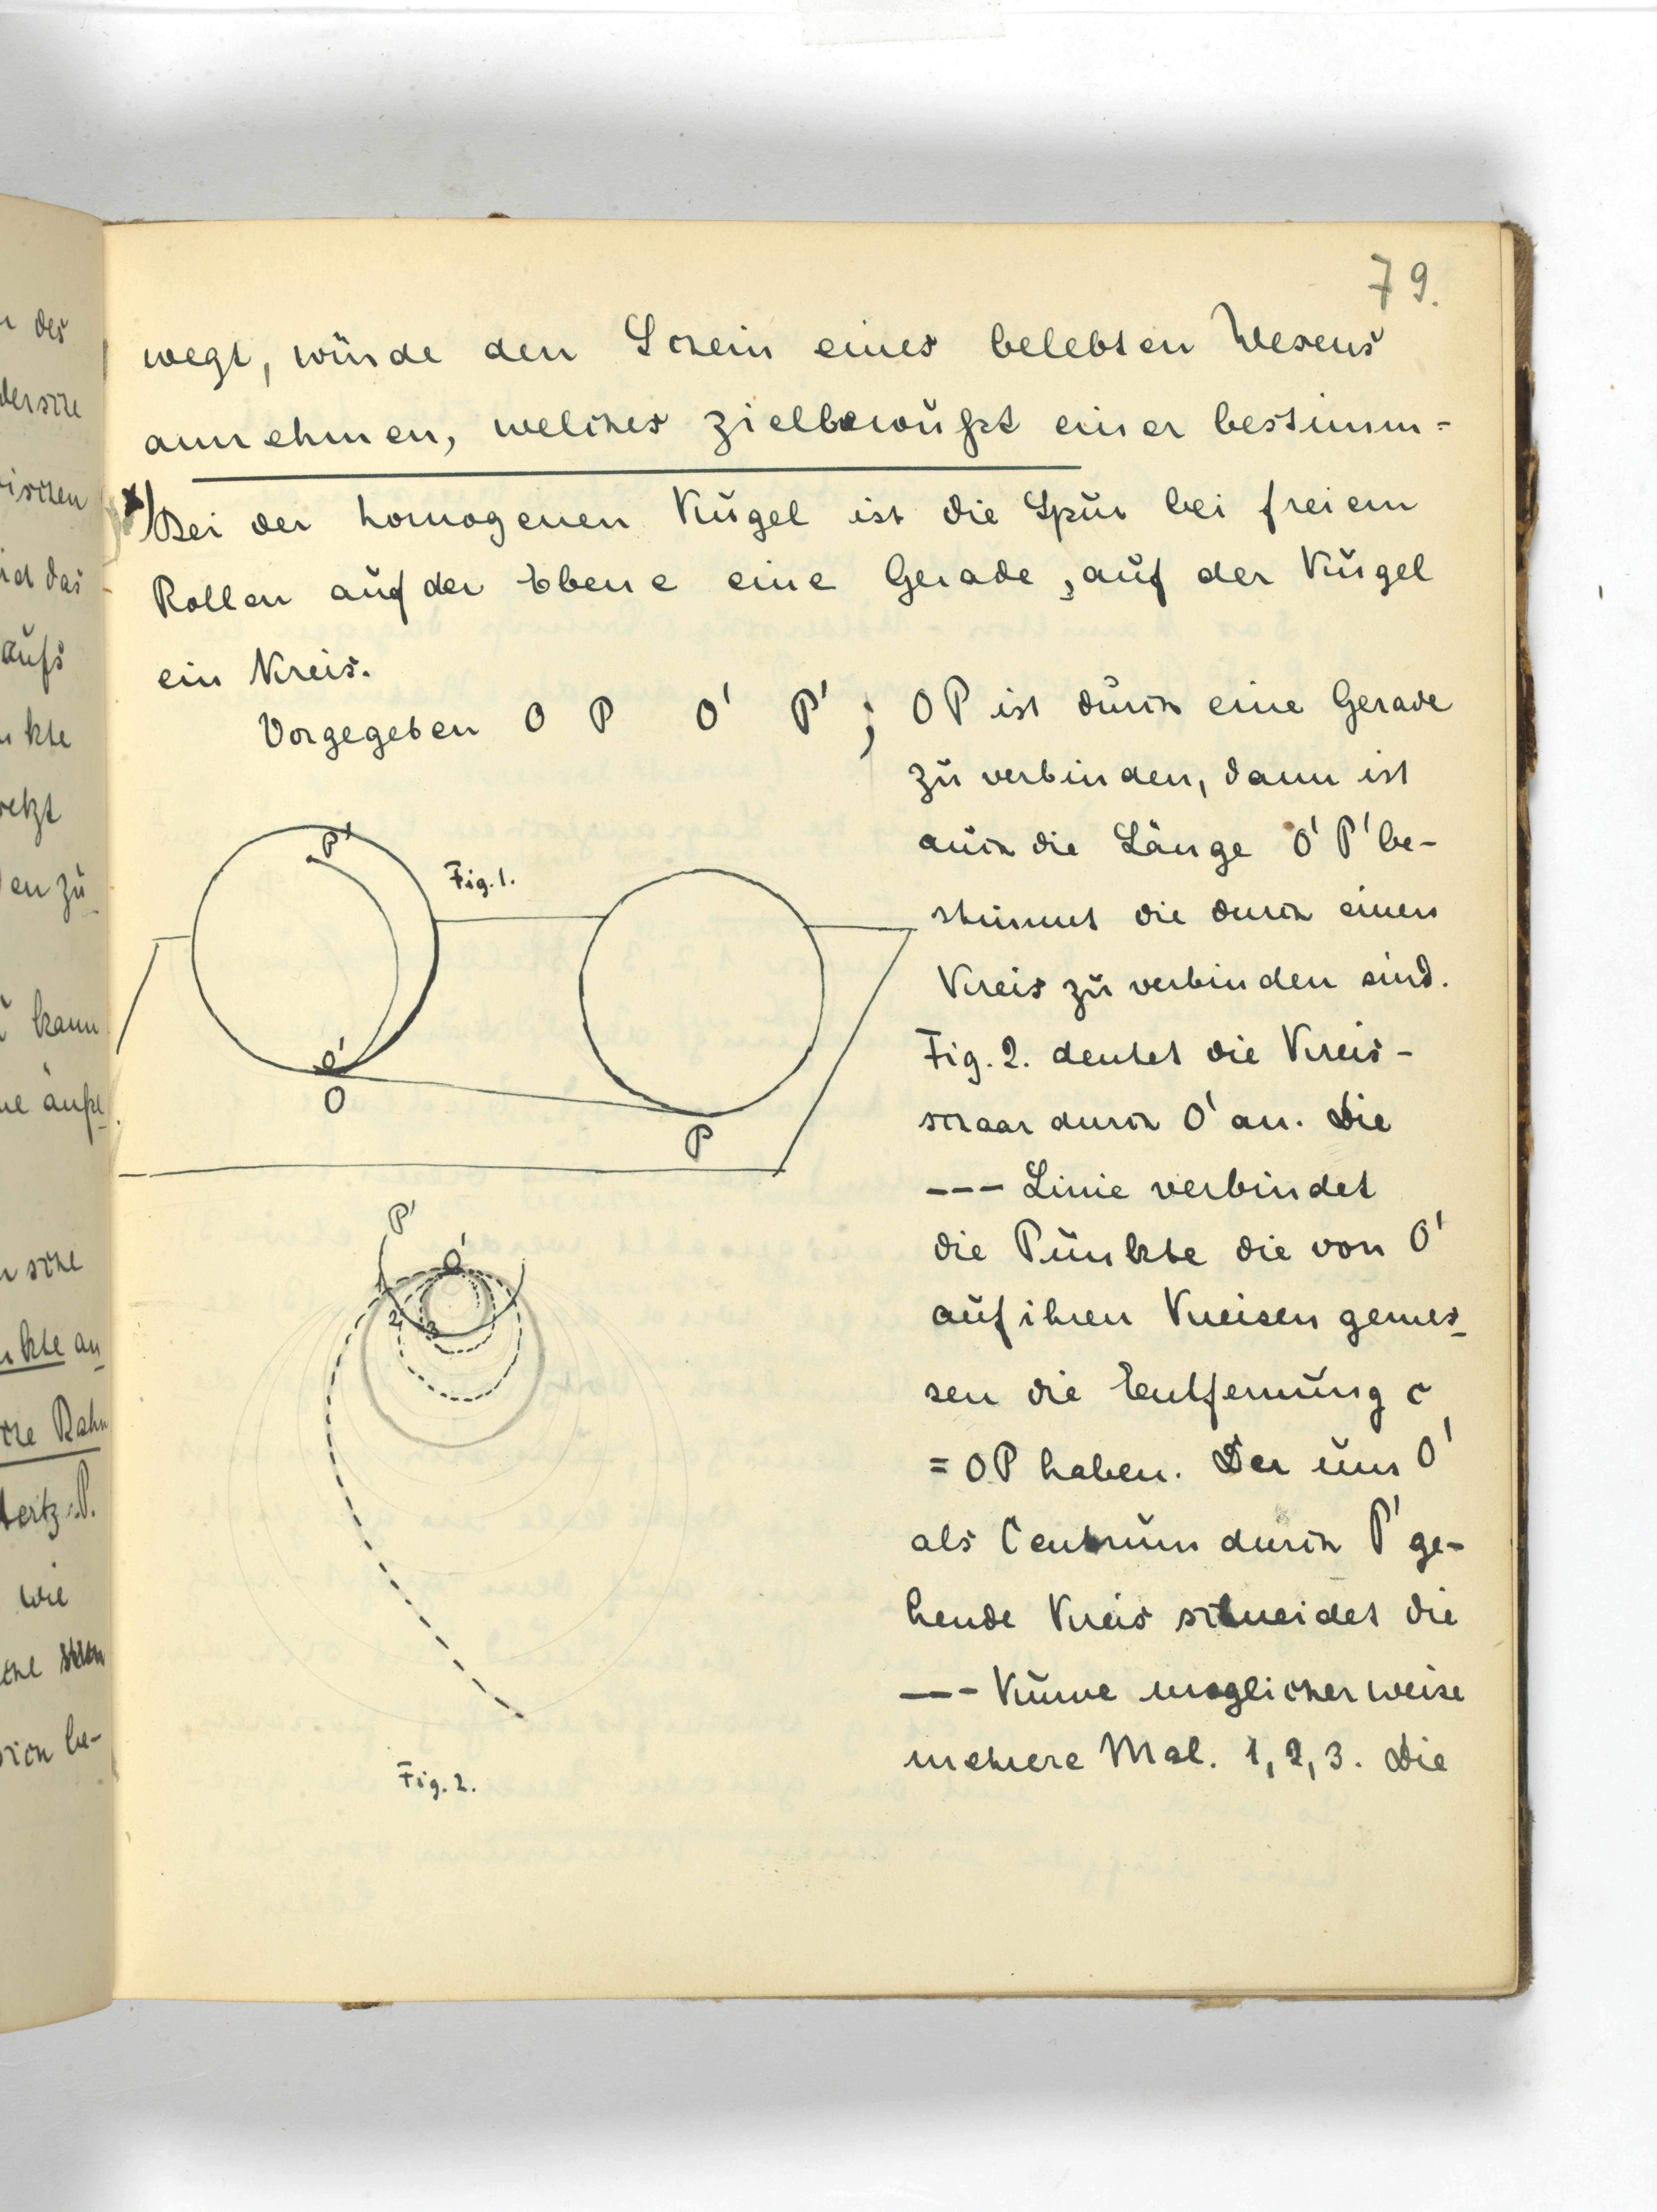 79.
wegt, würde den Schein eines belebten Wesens
annehmen, welches zielbewußt einer bestimm=
x) Bei der homogenen Kugel ist die Spur bei freiem
Rollen auf der Ebene eine Gerade, auf der Kugel
ein Kreis.
Vorgegeben O P O' P' ; OP ist durch eine Gerade
zu verbinden, dann ist
auch die Länge O'P' be-
stimmt die durch einen
Kreis zu verbinden sind.
Fig. 2. deutet die Kreis-
schaar durch O' an. Die
--- Linie verbindet
die Punkte die von O'
auf ihren Kreisen gemes-
sen die Entfernung c
= OP haben. Der um O'
als Centrum durch P' ge-
hende Kreis schneidet die
--- Kurve moglicherweise
mehrere Mal. 1, 2, 3. Die
P'
Fig. 1.
O'
O
P
P'
O'
2
3
Fig. 2.
des
das
aufs
kte
en zu
kann
kte an
Bahn
Hertz P.
wie
be-